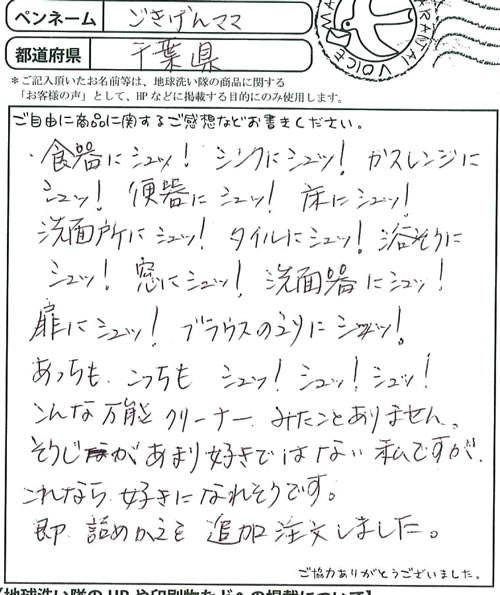 ペンネーム ごきげんママ
都道府県 千葉県
＊ご記入頂いたお名前等は、地球洗い隊の商品に関する
「お客様の声」として、HPなどに掲載する目的にのみ使用します。
VOICE
ご自由に商品に関するご感想などお書きください。
・食器にシュッ! シンクにシュッ! ガスレンジに
シュッ! 便器にシュッ! 床にシュッ!
洗面所にシュッ! タイルにシュッ! 浴そうに
シュッ! 窓にシュッ! 洗面器にシュッ!
扉にシュッ! ブラウスのえりにシュッ!
あっちも こっちも シュッ! シュッ! シュッ!
こんな万能クリーナー みたことありません。
そうじがあまり好きではない私ですが、
これなら好きになれそうです。
即 詰めかえを 追加注文しました。
ご協力ありがとうございました。